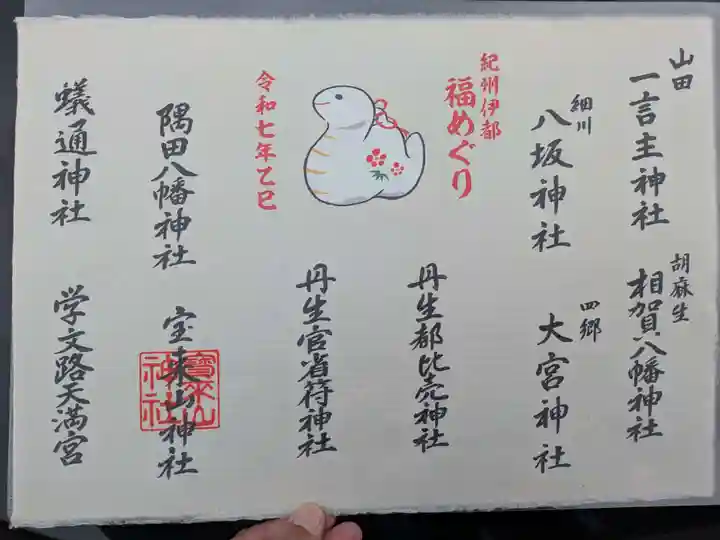 山田
一言主神社
胡麻生
相賀八幡神社
細川
八坂神社
四郷
大宮神社
紀州伊都
福めぐり
丹生都比売神社
令和七年乙巳
丹生官省符神社
隅田八幡神社
宝来山神社
寶来山
神社
蟻通神社
学文路天満宮